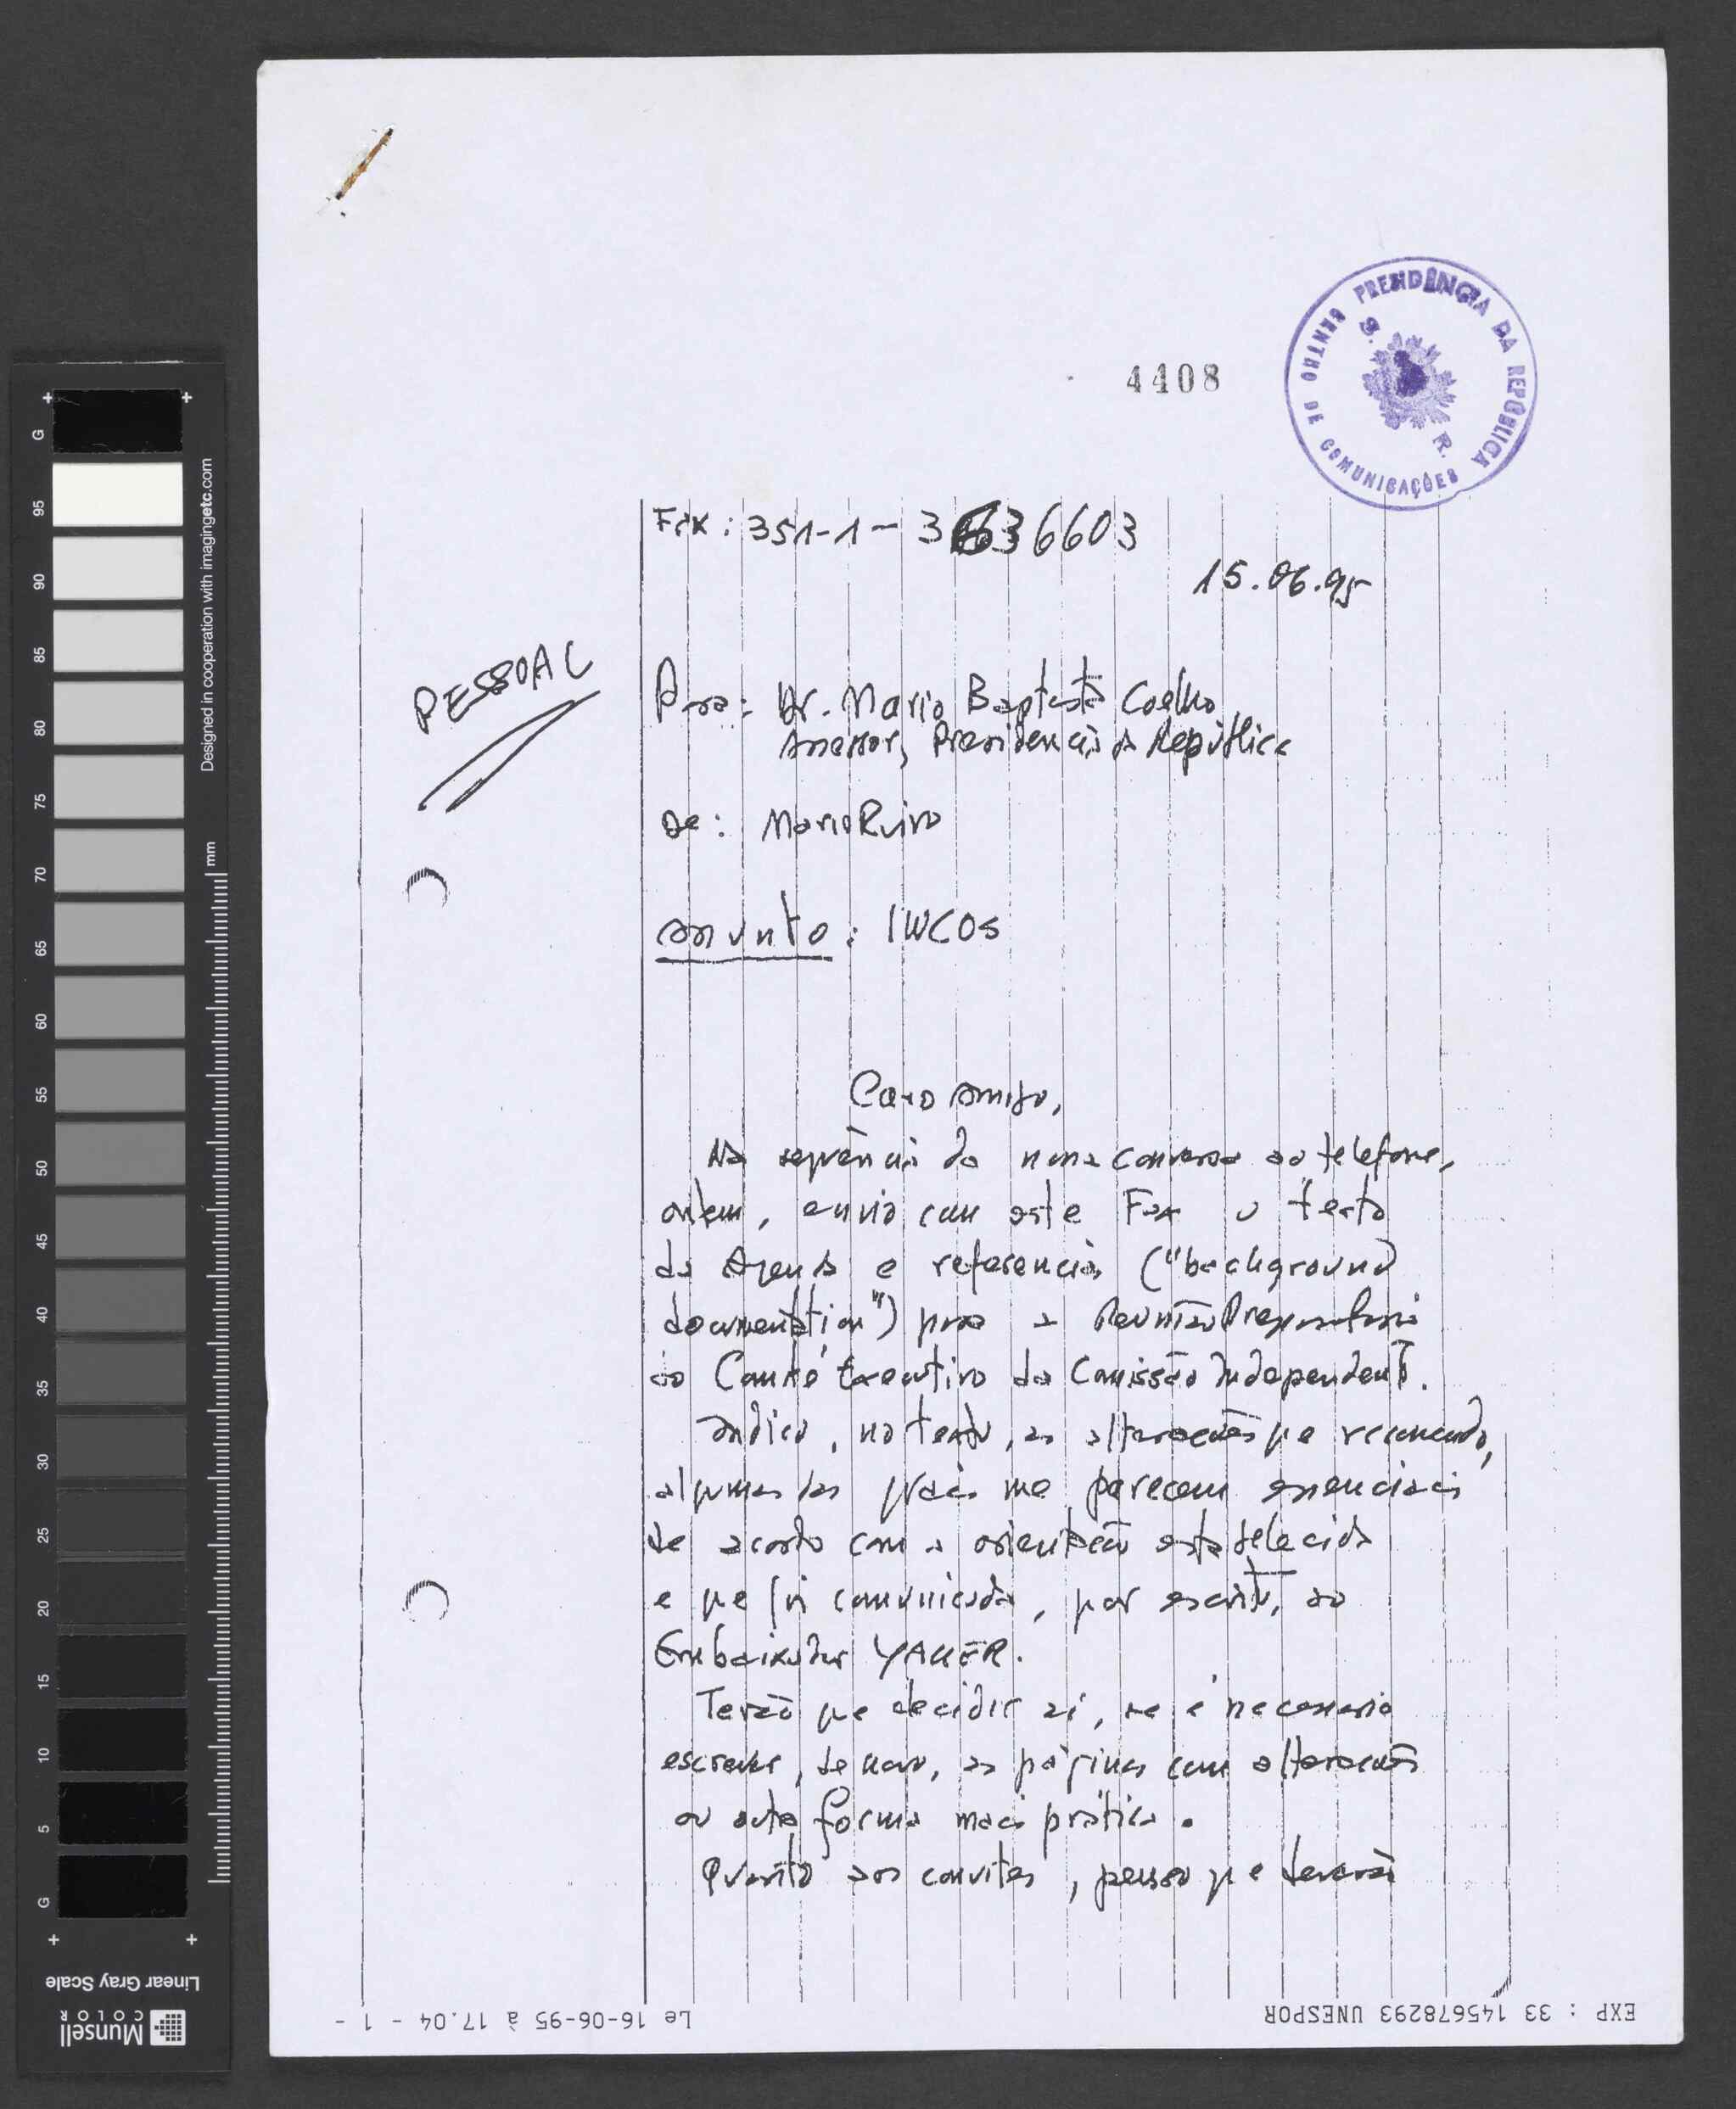 4408
PRESIDÊNCIA DA REPÚBLICA
CENTRO DE COMUNICAÇÕES
S. R.
Fax: 351-1-3636603
15.06.95
PESSOAL
Para: Dr. Mario Baptista Coelho
Assessor, Presidencia da República
De: Mario Ruivo
Assunto: IWCOS
Caro Amigo,
Na sequência da nossa conversa ao telefone,
ontem, envio com este Fax o texto
da Agenda e referencias ("background
documentation") para a Reunião Preparatoria
do Comité Executivo da Comissão Independente.
Indico, no texto, as alterações que recomendo,
algumas das quais me parecem essenciais
de acordo com a orientação estabelecida
e que foi comunicada, por escrito, ao
Embaixador YAKER.
Terão que decidir aí, se é necessario
escrever, de novo, as páginas com alterações
ou outra forma mais prática.
Quanto aos convites, penso que deverão
EXP : 33 145678293 UNESPOR
Le 16-06-95 à 17.04 - 1 -
Designed in cooperation with imagingetc.com
mm
G
95
90
85
80
75
70
65
60
55
50
45
40
35
30
25
20
15
10
5
G
Linear Gray Scale
Munsell
COLOR